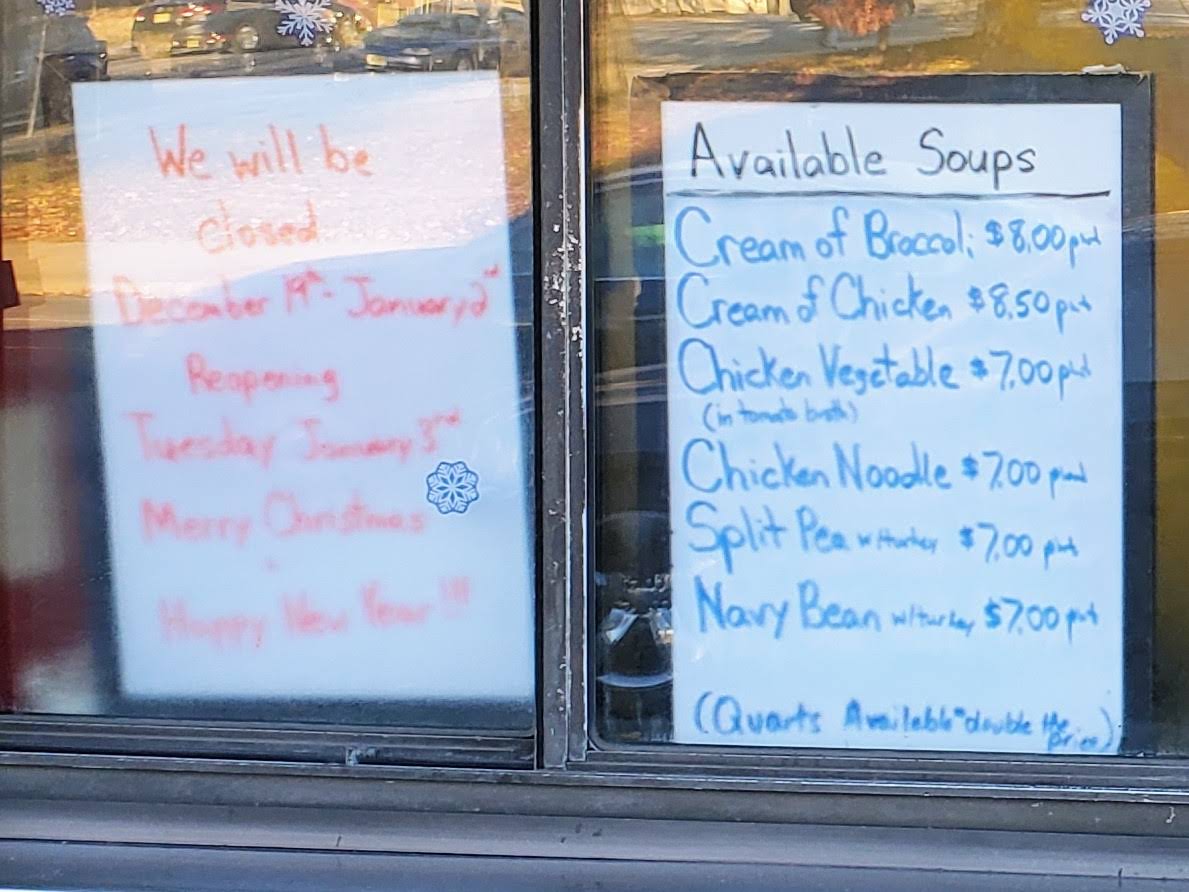 We will be
closed
December 19th - January 2nd
Reopening
Tuesday January 3rd
Merry Christmas
Happy New Year!!!
Available Soups
Cream of Broccoli $8.00 pint
Cream of Chicken $8.50 pint
Chicken Vegetable $7.00 pint
(in tomato broth)
Chicken Noodle $7.00 pint
Split Pea w/turkey $7.00 pint
Navy Bean w/turkey $7.00 pint
(Quarts Available "double the price)